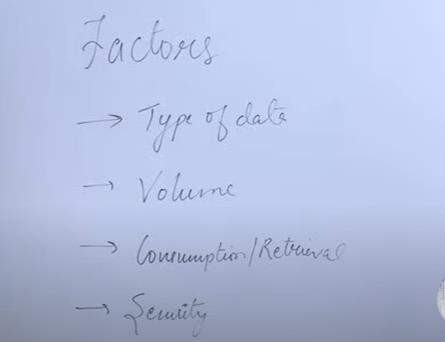 Factors
→ Type of data
→ Volume
→ Consumption/Retrieval
→ Security